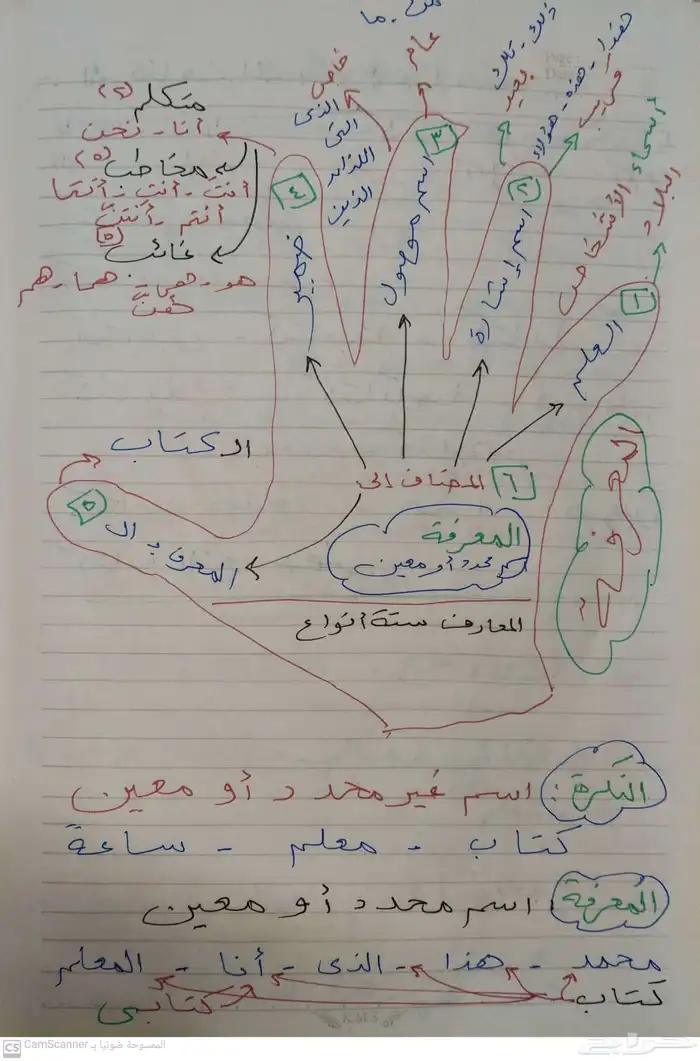 من - ما
هذا - هذه - هؤلاء
قريب
ذلك - تلك
بعيد
أسماء الأشخاص
البلاد
عام
خاص
الذى
التى
اللذان
الذين
متكلم (٢)
أنا - نحن
مخاطب (٥)
أنتَ - أنتِ - أنتما
أنتم - أنتنّ
غائب (٥)
هو - هى - هما - هم
هنّ
١ العلم
٢ اسم إشارة
٣ اسم موصول
٤ ضمير
الكتاب
٥ المعرف بـ ال
٦ المضاف إلى
المعرفة
اسم محدد أو معين
المعارف ستة أنواع
المعرفة
النكرة : اسم غير محدد أو معين
كتاب - معلم - ساعة
المعرفة : اسم محدد أو معين
محمد - هذا - الذى - أنا - المعلم
كتاب كتابى
الممسوحة ضوئيا بـ CamScanner
CS
حراج